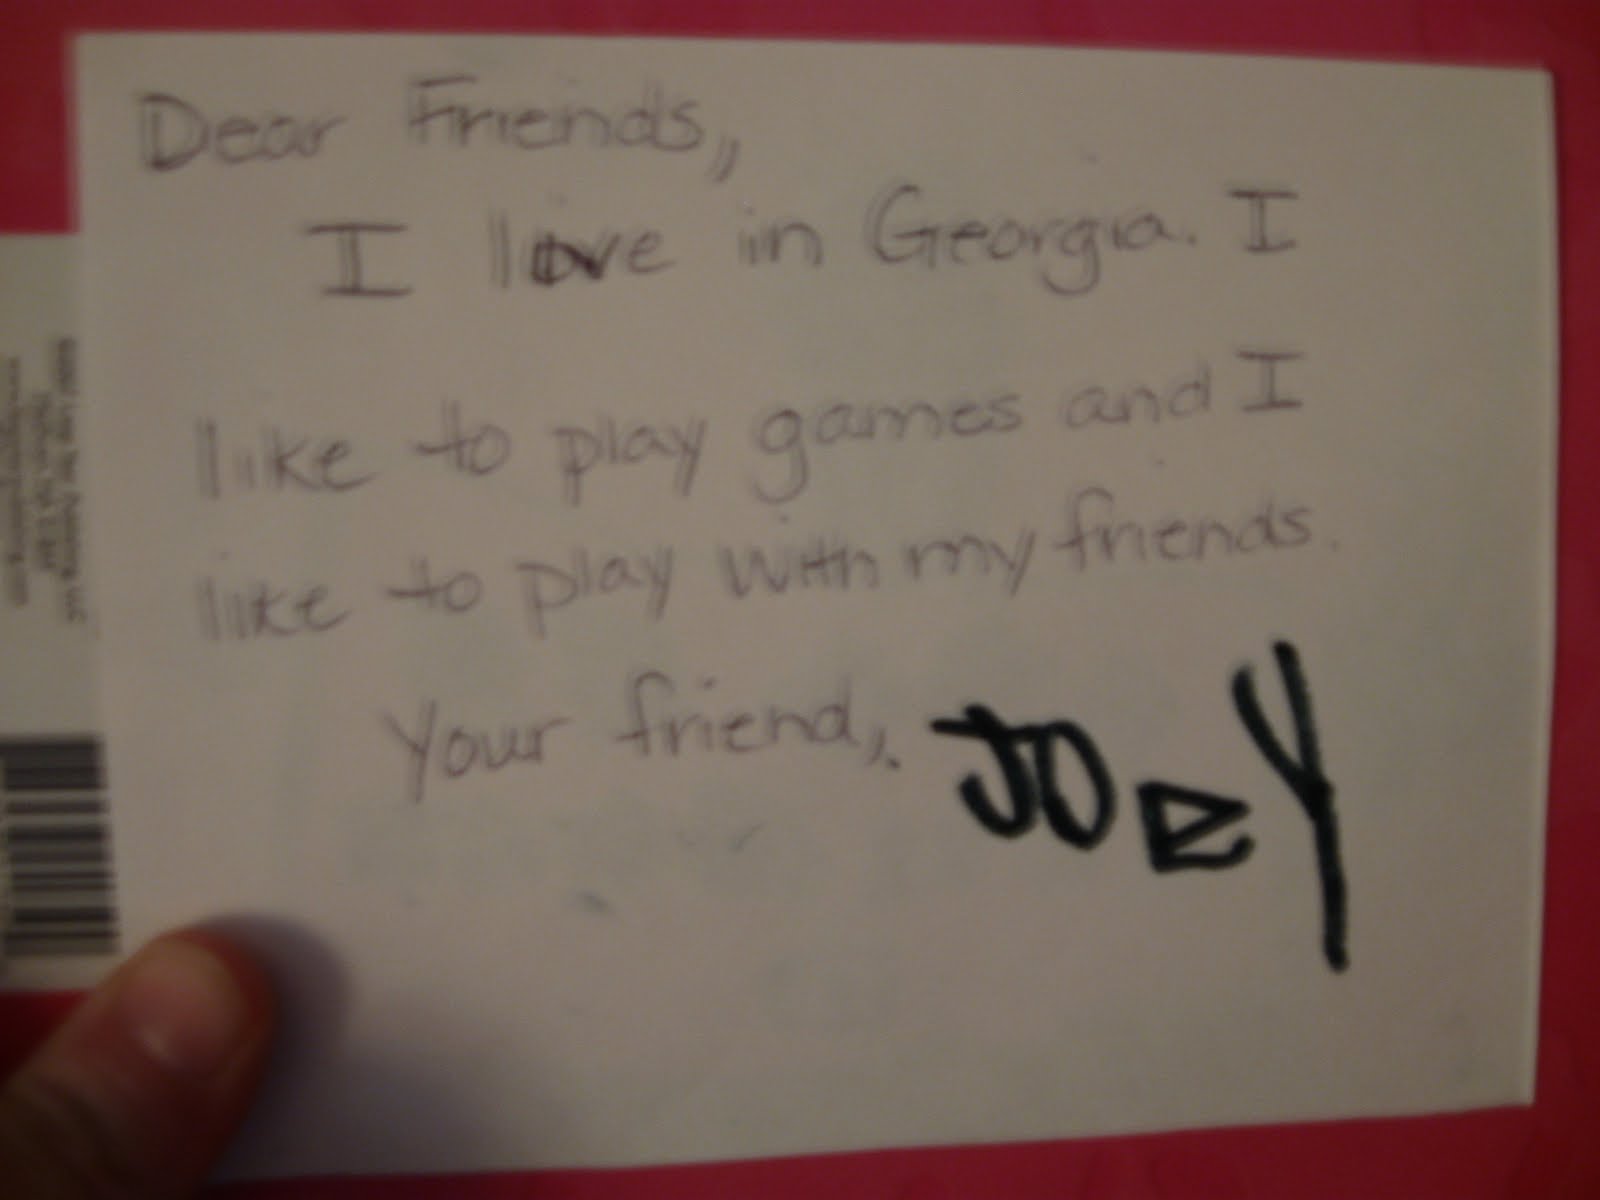 Dear Friends,
I live in Georgia. I
like to play games and I
like to play with my friends.
Your friend, JOEY